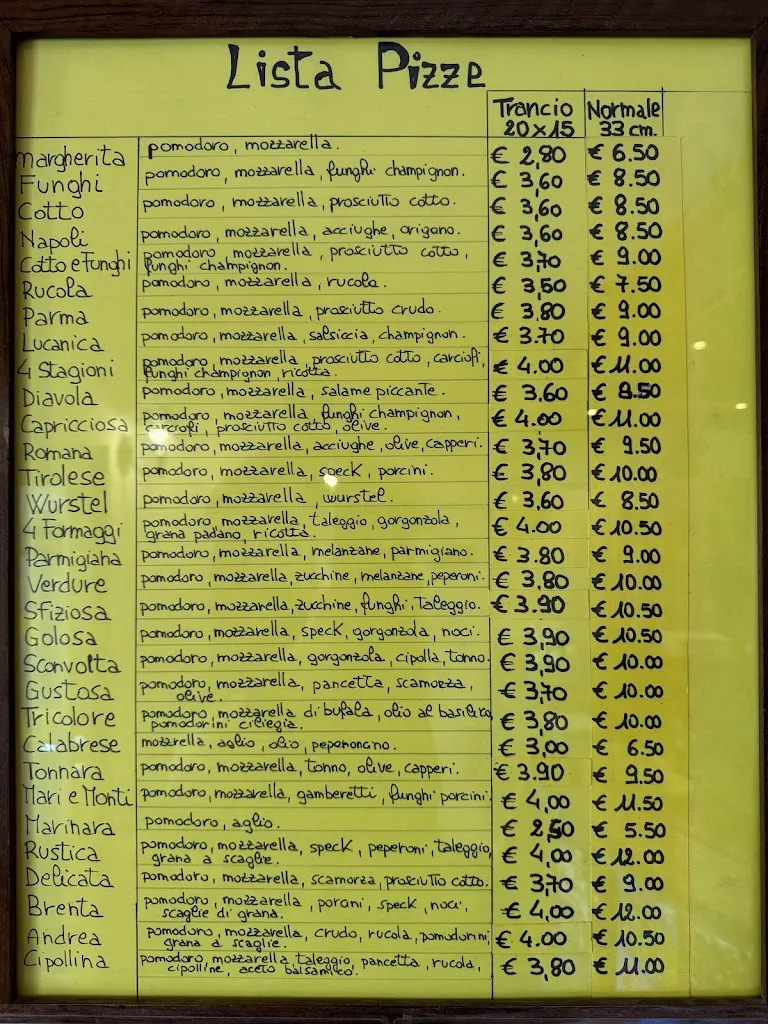 Lista Pizze
Trancio Normale
20x15 33 cm.
Margherita pomodoro, mozzarella. € 2,80 € 6.50
Funghi pomodoro, mozzarella, funghi champignon. € 3,60 € 8.50
Cotto pomodoro, mozzarella, prosciutto cotto. € 3,60 € 8.50
Napoli pomodoro, mozzarella, acciughe, origano. € 3,60 € 8.50
Cotto e Funghi pomodoro, mozzarella, prosciutto cotto, € 3,70 € 9.00
funghi champignon.
Rucola pomodoro, mozzarella, rucola. € 3,50 € 7.50
Parma pomodoro, mozzarella, prosciutto crudo. € 3,80 € 9.00
Lucanica pomodoro, mozzarella, salsiccia, champignon. € 3.70 € 9.00
4 Stagioni pomodoro, mozzarella, prosciutto cotto, carciofi, € 4.00 € 11.00
funghi champignon, ricotta.
Diavola pomodoro, mozzarella, salame piccante. € 3.60 € 9.50
Capricciosa pomodoro, mozzarella, funghi champignon, € 4.00 € 11.00
carciofi, prosciutto cotto, olive.
Romana pomodoro, mozzarella, acciughe, olive, capperi. € 3,70 € 9.50
Tirolese pomodoro, mozzarella, speck, porcini. € 3,80 € 10.00
Wurstel pomodoro, mozzarella, wurstel. € 3,60 € 8.50
4 Formaggi pomodoro, mozzarella, taleggio, gorgonzola, € 4.00 € 10.50
grana padano, ricotta.
Parmigiana pomodoro, mozzarella, melanzane, parmigiano. € 3.80 € 9.00
Verdure pomodoro, mozzarella, zucchine, melanzane, peperoni. € 3,80 € 10.00
Sfiziosa pomodoro, mozzarella, zucchine, funghi, Taleggio. € 3.90 € 10.50
Golosa pomodoro, mozzarella, speck, gorgonzola, noci. € 3,90 € 10.50
Sconvolta pomodoro, mozzarella, gorgonzola, cipolla, tonno. € 3,90 € 10.00
Gustosa pomodoro, mozzarella, pancetta, scamorza, € 3,70 € 10.00
olive.
Tricolore pomodoro, mozzarella di bufala, olio al basilico, € 3,80 € 10.00
pomodorini ciliegia.
Calabrese mozzarella, aglio, olio, peperoncino. € 3,00 € 6.50
Tonnara pomodoro, mozzarella, tonno, olive, capperi. € 3.90 € 9.50
Mari e Monti pomodoro, mozzarella, gamberetti, funghi porcini. € 4,00 € 11.50
Marinara pomodoro, aglio. € 2,50 € 5.50
Rustica pomodoro, mozzarella, speck, peperoni, taleggio, € 4,00 € 12.00
grana a scaglie.
Delicata pomodoro, mozzarella, scamorza, prosciutto cotto. € 3,70 € 9.00
Brenta pomodoro, mozzarella, porcini, speck, noci, € 4,00 € 12.00
scaglie di grana.
Andrea pomodoro, mozzarella, crudo, rucola, pomodorini, € 4.00 € 10.50
grana a scaglie.
Cipollina pomodoro, mozzarella, taleggio, pancetta, rucola, € 3,80 € 11.00
cipolline, aceto balsamico.